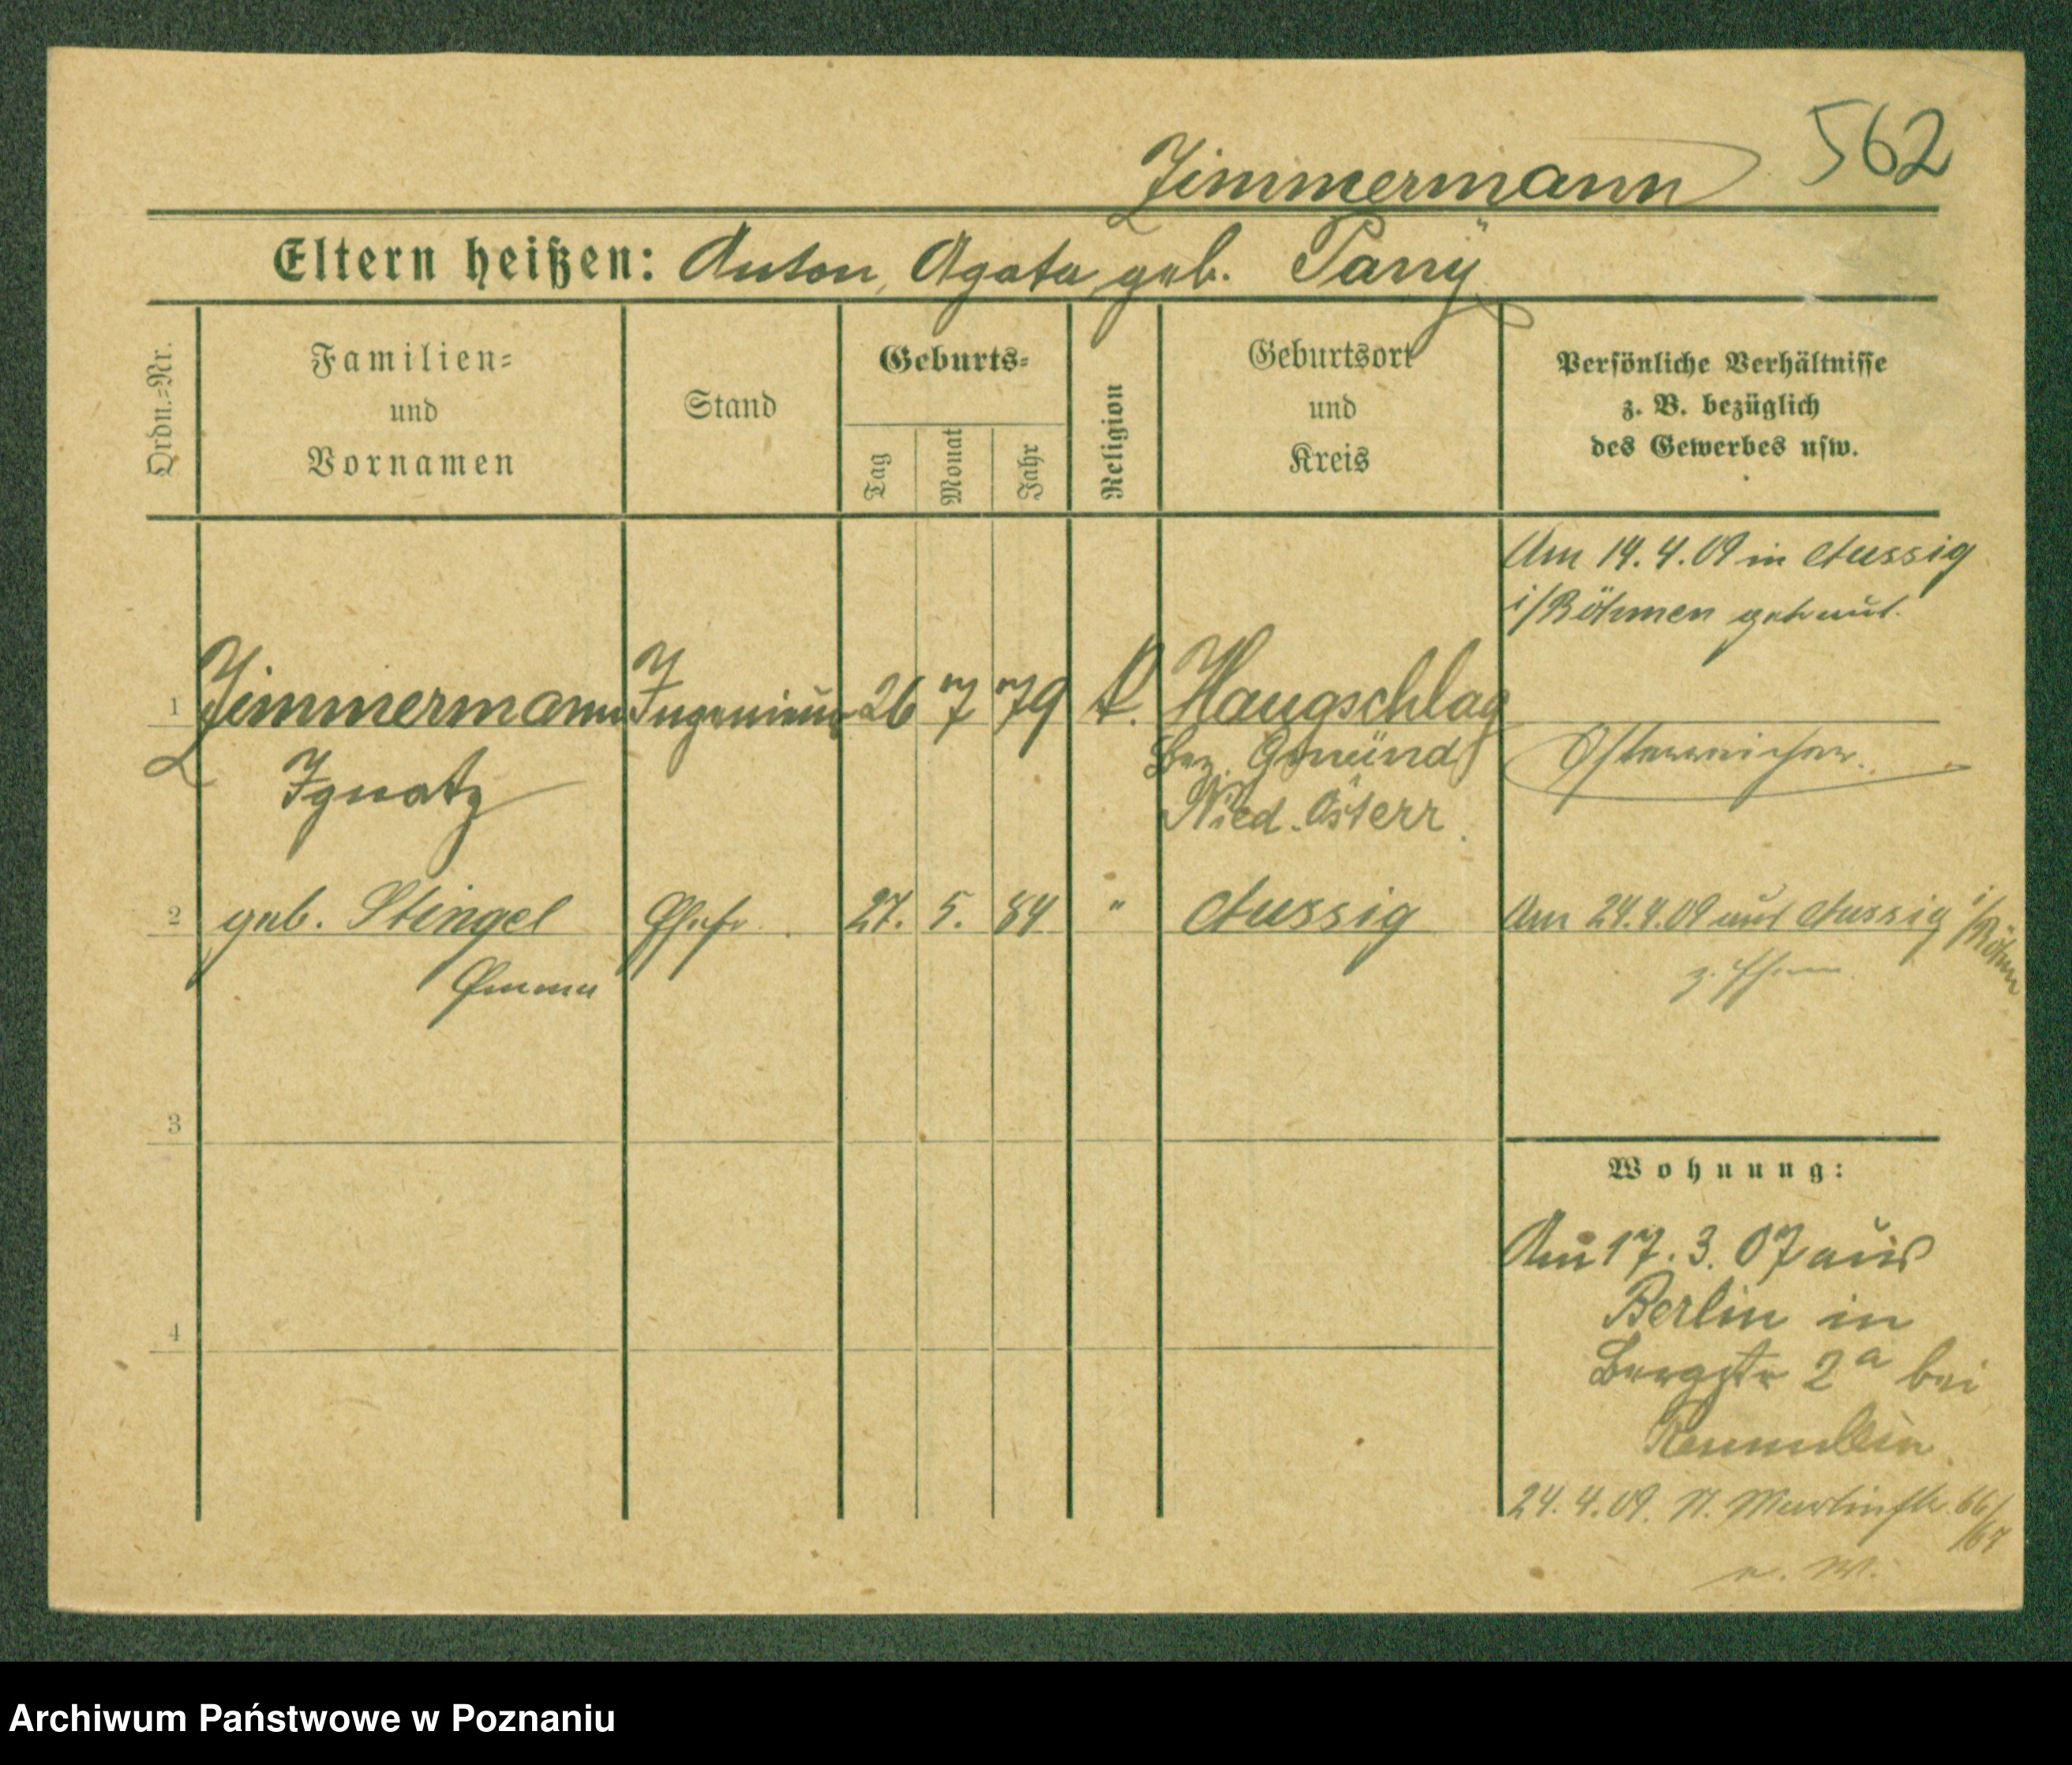 562
Zimmermann
Eltern heißen: Anton, Agata, geb. Pany
Ordn.=Nr.
Familien=
und
Vornamen
Stand
Geburts=
Tag
Monat
Jahr
Religion
Geburtsort
und
Kreis
Persönliche Verhältnisse
z. B. bezüglich
des Gewerbes usw.
Am 14.4.09 in Aussig
i/Böhmen getraut.
1 Zimmermann Ingenieur 26 7 79 k. Haugschlag
Ignatz
Bez. Gmünd
Nied. Österr
Österreicher.
2 geb. Stingel Ehefr. 27. 5. 84 " Aussig
Emma
Am 24.4.09 aus Aussig i/Böhmen
z. Ehem.
3
4
Wohnung:
Am 17.3.07 aus
Berlin in
Bergstr 2a bei
24.4.09. St. Martinstr. 66/67